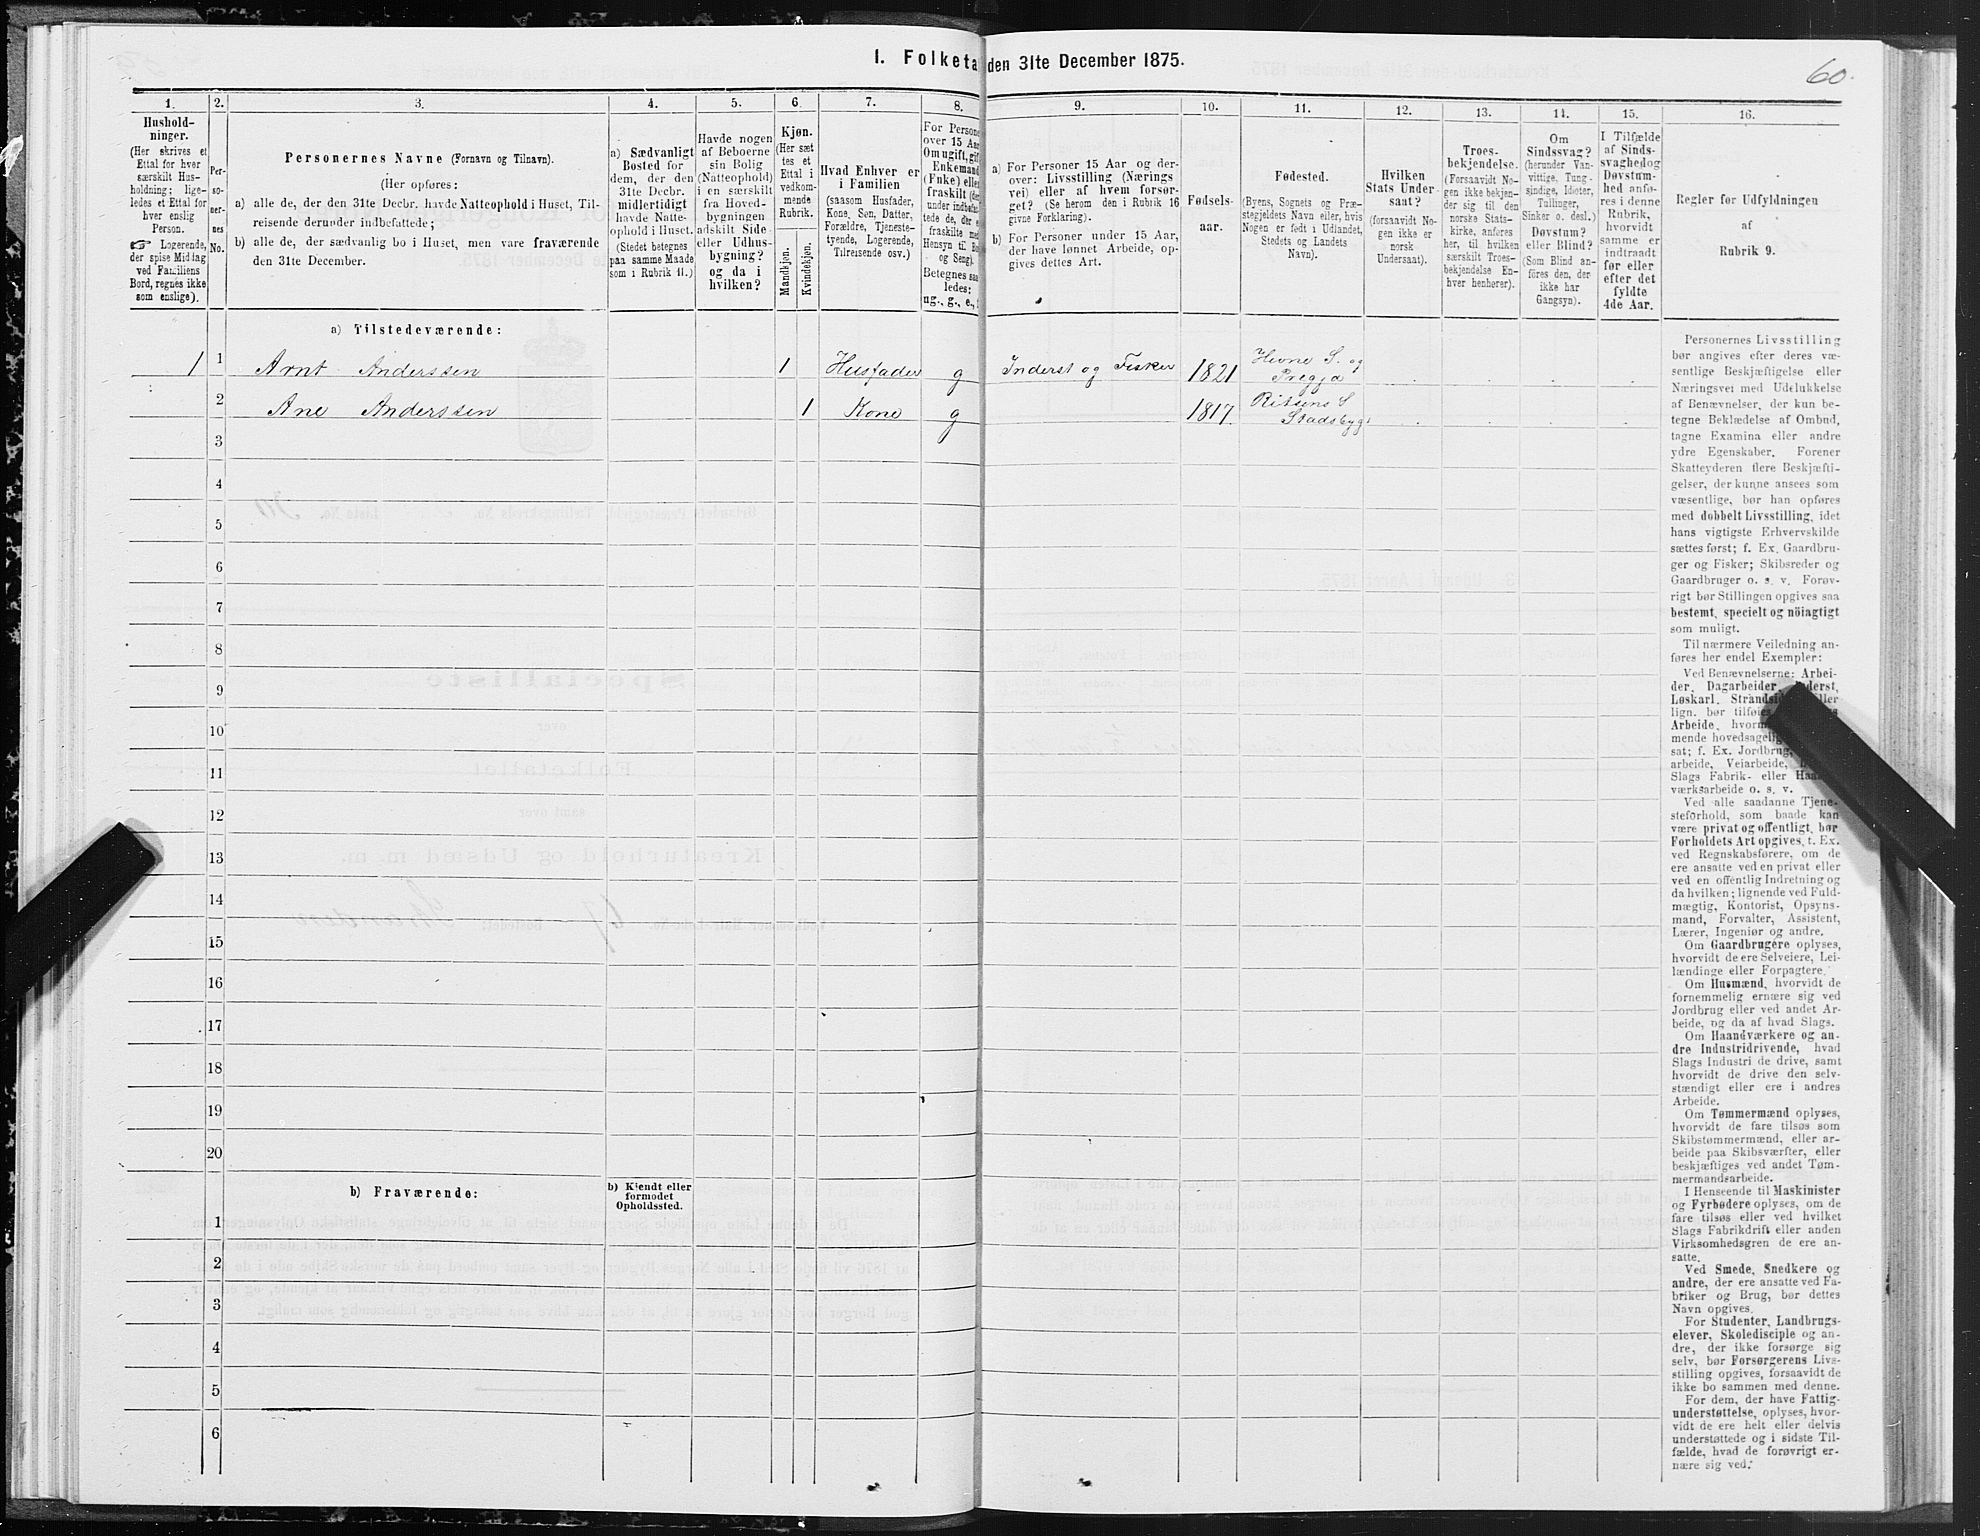 I. Folketa den 31te December 1875.
60.
1.
2.
3.
4.
5.
6.
7.
8.
9.
10.
11.
12.
13.
14.
15.
16.
Hushold-
ninger.
(Her skrives et
Ettal for hver
særskilt Hus-
holdning; lige-
ledes et Ettal for
hver enslig
Person.
☞ Logerende,
der spise Middag
ved Familiens
Bord, regnes ikke
som enslige).
Per-
so-
ner-
nes
No.
Personernes Navne (Fornavn og Tilnavn).
(Her opføres:
a) alle de, der den 31te Decbr. havde Natteophold i Huset, Til-
reisende derunder indbefattede;
b) alle de, der sædvanlig bo i Huset, men vare fraværende
den 31te December.
a) Sædvanligt
Bosted for
dem, der den
31te Decbr.
midlertidigt
havde Natte-
ophold i Huset.
(Stedet betegnes
paa samme Maade
som i Rubrik 11.)
Havde nogen
af Beboerne
sin Bolig
(Natteophold)
i en særskilt
fra Hoved-
bygningen
adskilt Side
eller Udhus-
bygning?
og da i
hvilken?
Kjøn.
(Her sæt
tes et
Ettal i
vedkom-
mende
Rubrik.
Mandkjøn.
Kvindekjøn.
Hvad Enhver er
i Familien
(saasom Husfader,
Kone, Søn, Datter,
Forældre, Tjeneste-
tyende, Logerende,
Tilreisende osv.)
For Persone
over 15 Aa
Om ugift, gif
Enkemand
(Fnke) elle
fraskilt (de
under indbefat
tede de, der e
fraskilte me
Hensyn til Bo
og Seng).
Betegnes saa
ledes:
ug., g., e.,
a) For Personer 15 Aar og der-
over: Livsstilling (Nærings
vei) eller af hvem forsør-
get? (Se herom den i Rubrik 16
givne Forklaring).
b) For Personer under 15 Aar,
der have lønnet Arbeide, op-
gives dettes Art.
Fødsels-
aar.
Fødested.
(Byens, Sognets og Præ-
stegjeldets Navn eller, hvis
Nogen er født i Udlandet,
Stedets og Landets
Navn).
Hvilken
Stats Under-
saat?
(forsaavidt No-
gen ikke er
norsk
Undersaat).
Troes-
bekjendelse.
(Forsaavidt No-
gen ikke bekjen-
der sig til den
norske Stats-
kirke, anføres
her, til hvilken
særskilt Troes-
bekjendelse En-
hver henhører).
Om
Sindssvag?
(herunder Van-
vittige, Tung-
sindige, Idioter,
Tullinger,
Sinker o. desl.)
Døvstum?
eller Blind?
(Som Blind an-
föres den, der
ikke har
Gangsyn).
I Tilfælde
af Sinds-
svaghedog
Døvstum-
hed anfø-
res i denne
Rubrik,
hvorvidt
samme er
indtraadt
før eller
efter det
fyldte
4de Aar.
Regler for Udfyldningen
af
Rubrik 9.
a) Tilstedeværende:
1 1 Arnt Anderssen 1 Husfader g Inderst og Fisker 1821 Hevne S. og
Pregjd
2 Ane Anderssen 1 Kone g 1817. Ritsens S
Stadsbyg
3
4
5
6
7
8
9
10
11
12
13
14
15
16
17
18
19
20
b) Fraværende:
b) Kjendt eller
formodet
Opholdssted.
1
2
3
4
5
6
Personernes Livsstilling
bør angives efter deres væ-
sentlige Beskjæftigelse eller
Næringsvei med Udelukkelse
af Benævnelser, der kun be-
tegne Beklædelse af Ombud,
tagne Examina eller andre
ydre Egenskaber. Forener
Skatteyderen flere Beskjæfti-
gelser, der kunne ansees som
væsentlige, bør han opføres
med dobbelt Livsstilling, idet
hans vigtigste Erhvervskilde
sættes først; f. Ex. Gaardbru-
ger og Fisker; Skibsreder og
Gaardbruger o. s. v. Forøv-
rigt bør Stillingen opgives saa
bestemt, specielt og nöiagtigt
som muligt.
Til nærmere Veiledning an-
føres her endel Exempler:
Ved Benævnelserne: Arbei-
der, Dagarbeider, derst,
Løskarl, Strandsi ller
lign. bør tilføies
Arbeide, hvor
mende hovedsagelig
sat; f. Ex. Jordbrug,
arbeide, Veiarbeide,
Slags Fabrik- eller Haa
værksarbeide o. s. v.
Ved alle saadanne Tjene-
steforhold, som baade kan
være privat og offentligt, bør
Forholdets Art opgives, t. Ex.
ved Regnskabsførere, om de
ere ansatte ved en privat eller
ved en offentlig Indretning og
da hvilken; lignende ved Fuld-
mægtig, Kontorist, Opsyns-
mand, Forvalter, Assistent,
Lærer, Ingeniør og andre.
Om Gaardbrugere oplyses,
hvorvidt de ere Selveiere, Lei-
lændinge eller Forpagtere.
Om Husmænd, hvorvidt de
fornemmelig ernære sig ved
Jordbrug eller ved andet Ar-
beide, og da af hvad Slags.
Om Haandværkere og an-
dre Industridrivende, hvad
Slags Industri de drive, samt
hvorvidt de drive den selv-
stændigt eller ere i andres
Arbeide.
Om Tømmermænd oplyses,
hvorvidt de fare tilsøs som
Skibstømmermænd, eller ar-
beide paa Skibsværfter, eller
beskjæftiges ved andet Tøm-
mermandsarbeide.
I Henseende til Maskinister
og Fyrbødere oplyses, om de
fare tilsøs eller ved hvilket
Slags Fabrikdrift eller anden
Virksomhedsgren de ere an-
satte.
Ved Smede, Snedkere og
andre, der ere ansatte ved Fa-
briker og Brug, bør dettes
Navn opgives.
For Studenter, Landbrugs-
elever, Skoledisciple og an-
dre, der ikke forsørge sig
selv, bør Forsørgerens Livs-
stilling opgives, forsaavidt de
ikke bo sammen med denne.
For dem, der have Fattig-
understøttelse, oplyses, hvor-
vidt de ere helt eller delvis
understøttede og i sidste Til-
fælde, hvad de forøvrigt er-
nære sig ved.